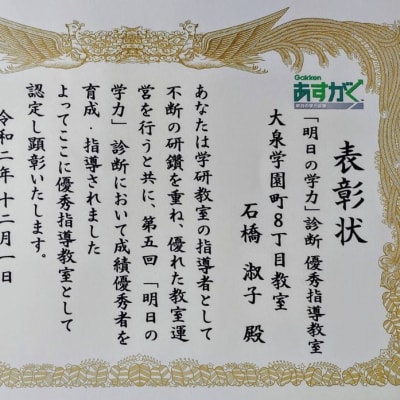 Gakken
あすがく
表彰状
「明日の学力」診断 優秀指導教室
大泉学園町8丁目教室
石橋 淑子 殿
あなたは学研教室の指導者として
不断の研鑽を重ね、優れた教室運
営を行うと共に、第五回「明日の
学力」診断において成績優秀者を
育成・指導されました
よってここに優秀指導教室として
認定し顕彰いたします。
令和二年十二月一日